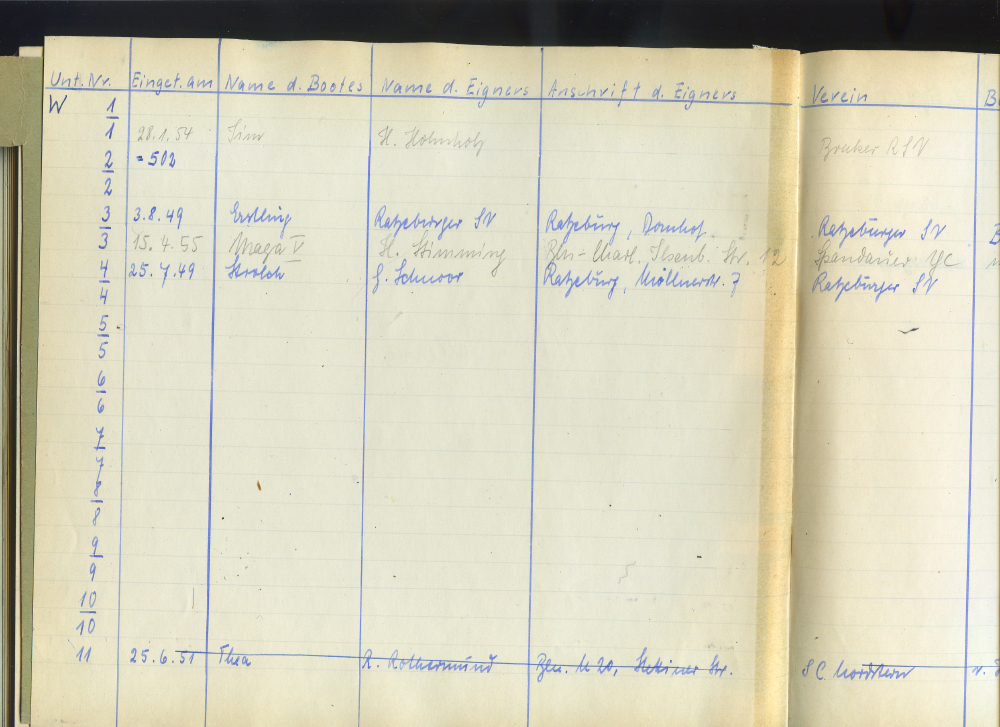 Unt. Nr. Einget. am Name d. Bootes Name d. Eigners Anschrift d. Eigners Verein B
W 1
1 28.1.54 H. Hohnholz Braker RSV
2 = 502
2
3 3.8.49 Erstling Ratzeburger SV Ratzeburg, Domhof. Ratzeburger SV B
3 15.4.55 Maga V H. Stimming Bln-Charl. Ilsenb. Str. 12 Spandauer YC
4 25.7.49 Strolch G. Schnoor Ratzeburg, Möllnerstr. 7 Ratzeburger SV
4
5
5
6
6
7
7
8
8
9
9
10
10
11 25.6.51 Thea R. Rothermund Bln. N 20, Stettiner Str. SC Nordstern